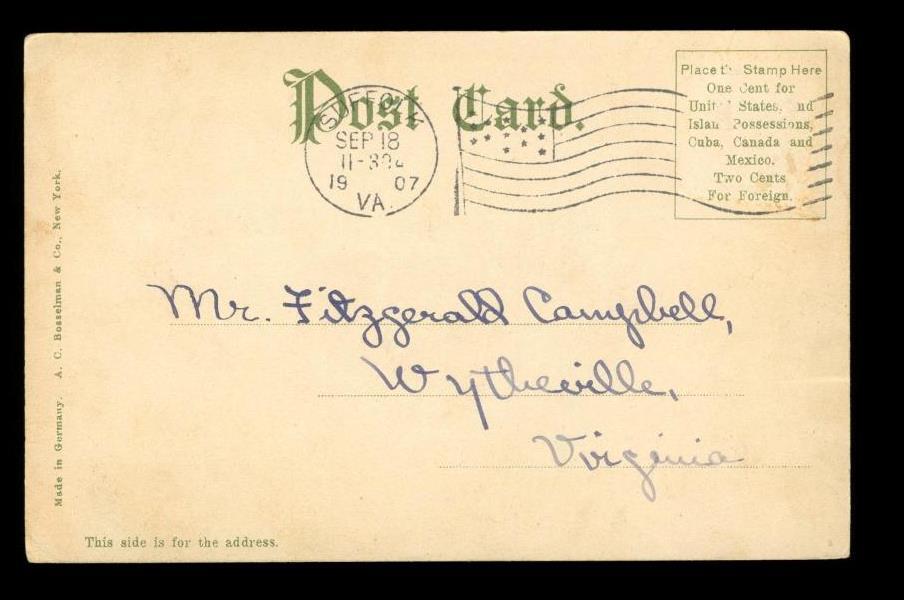 Post Card.
SEP 18
19 07
VA.
Place Stamp Here
One Cent for
States,
Possessions,
Cuba, Canada and
Mexico.
Two Cents
For Foreign.
Mr. Fitzgerald Campbell,
Wytheville,
Virginia
Made in Germany. A. C. Bosselman & Co., New York.
This side is for the address.